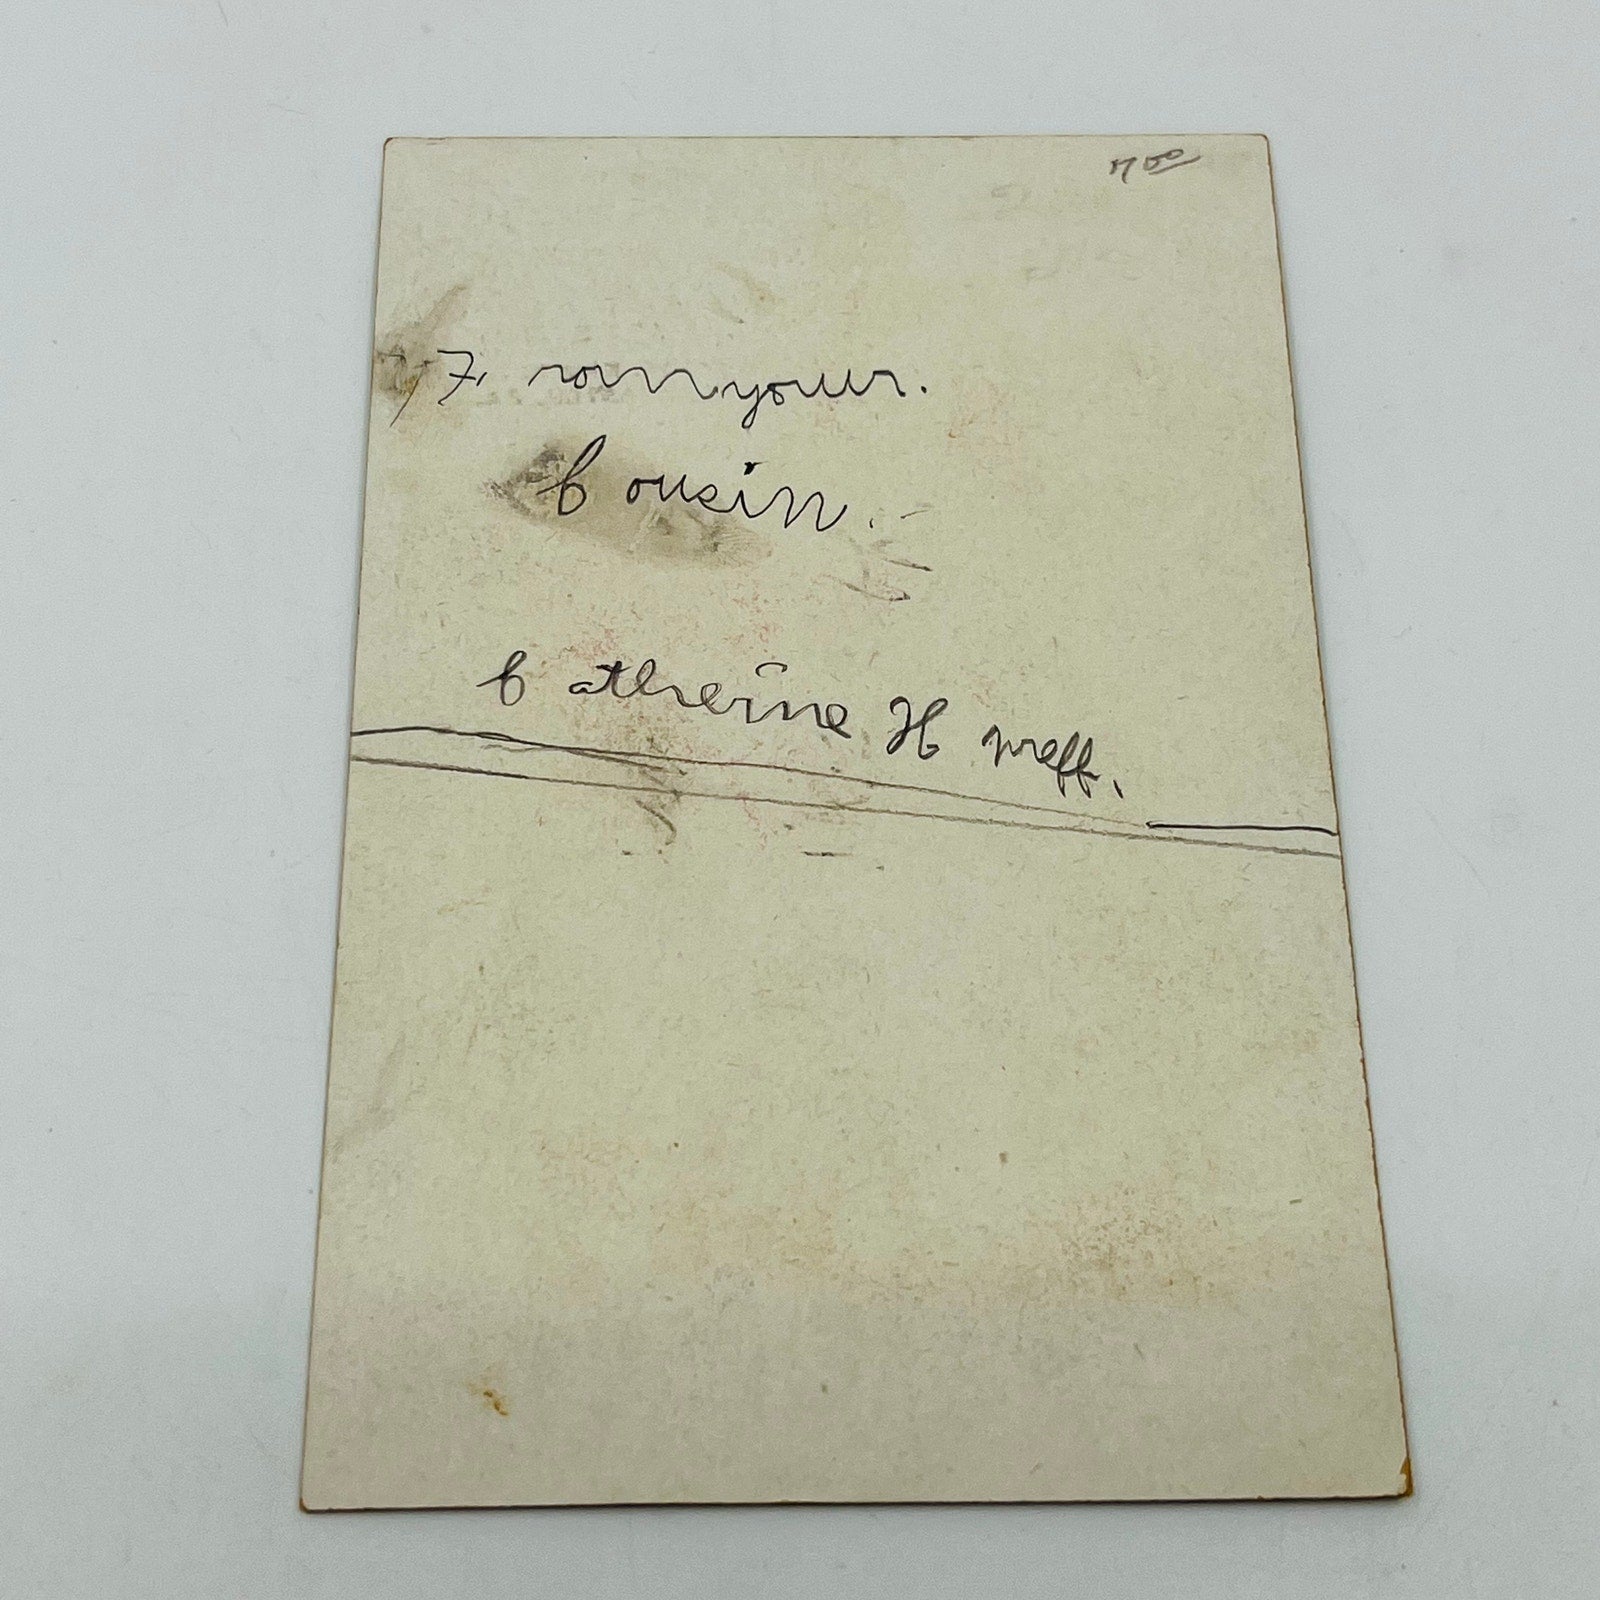 7 50
From your.
Cousin.
Catherine H